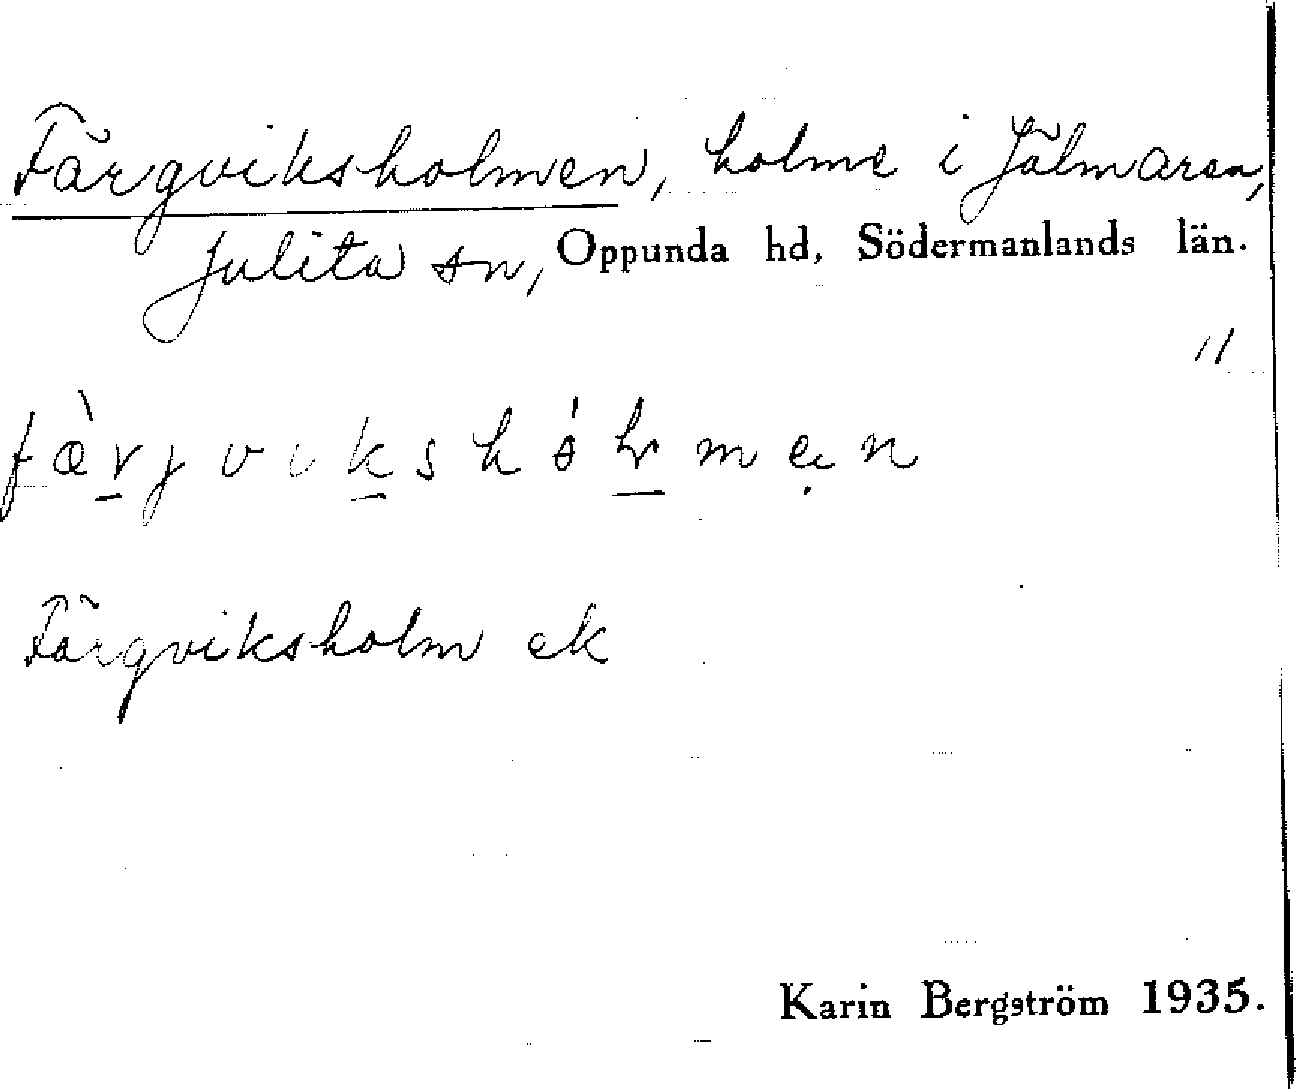 Färgviksholmen, holme i Jälmaren,
Julita sn, Oppunda hd, Södermanlands län.
11
Färgviksholm ek
Karin Bergström 1935.